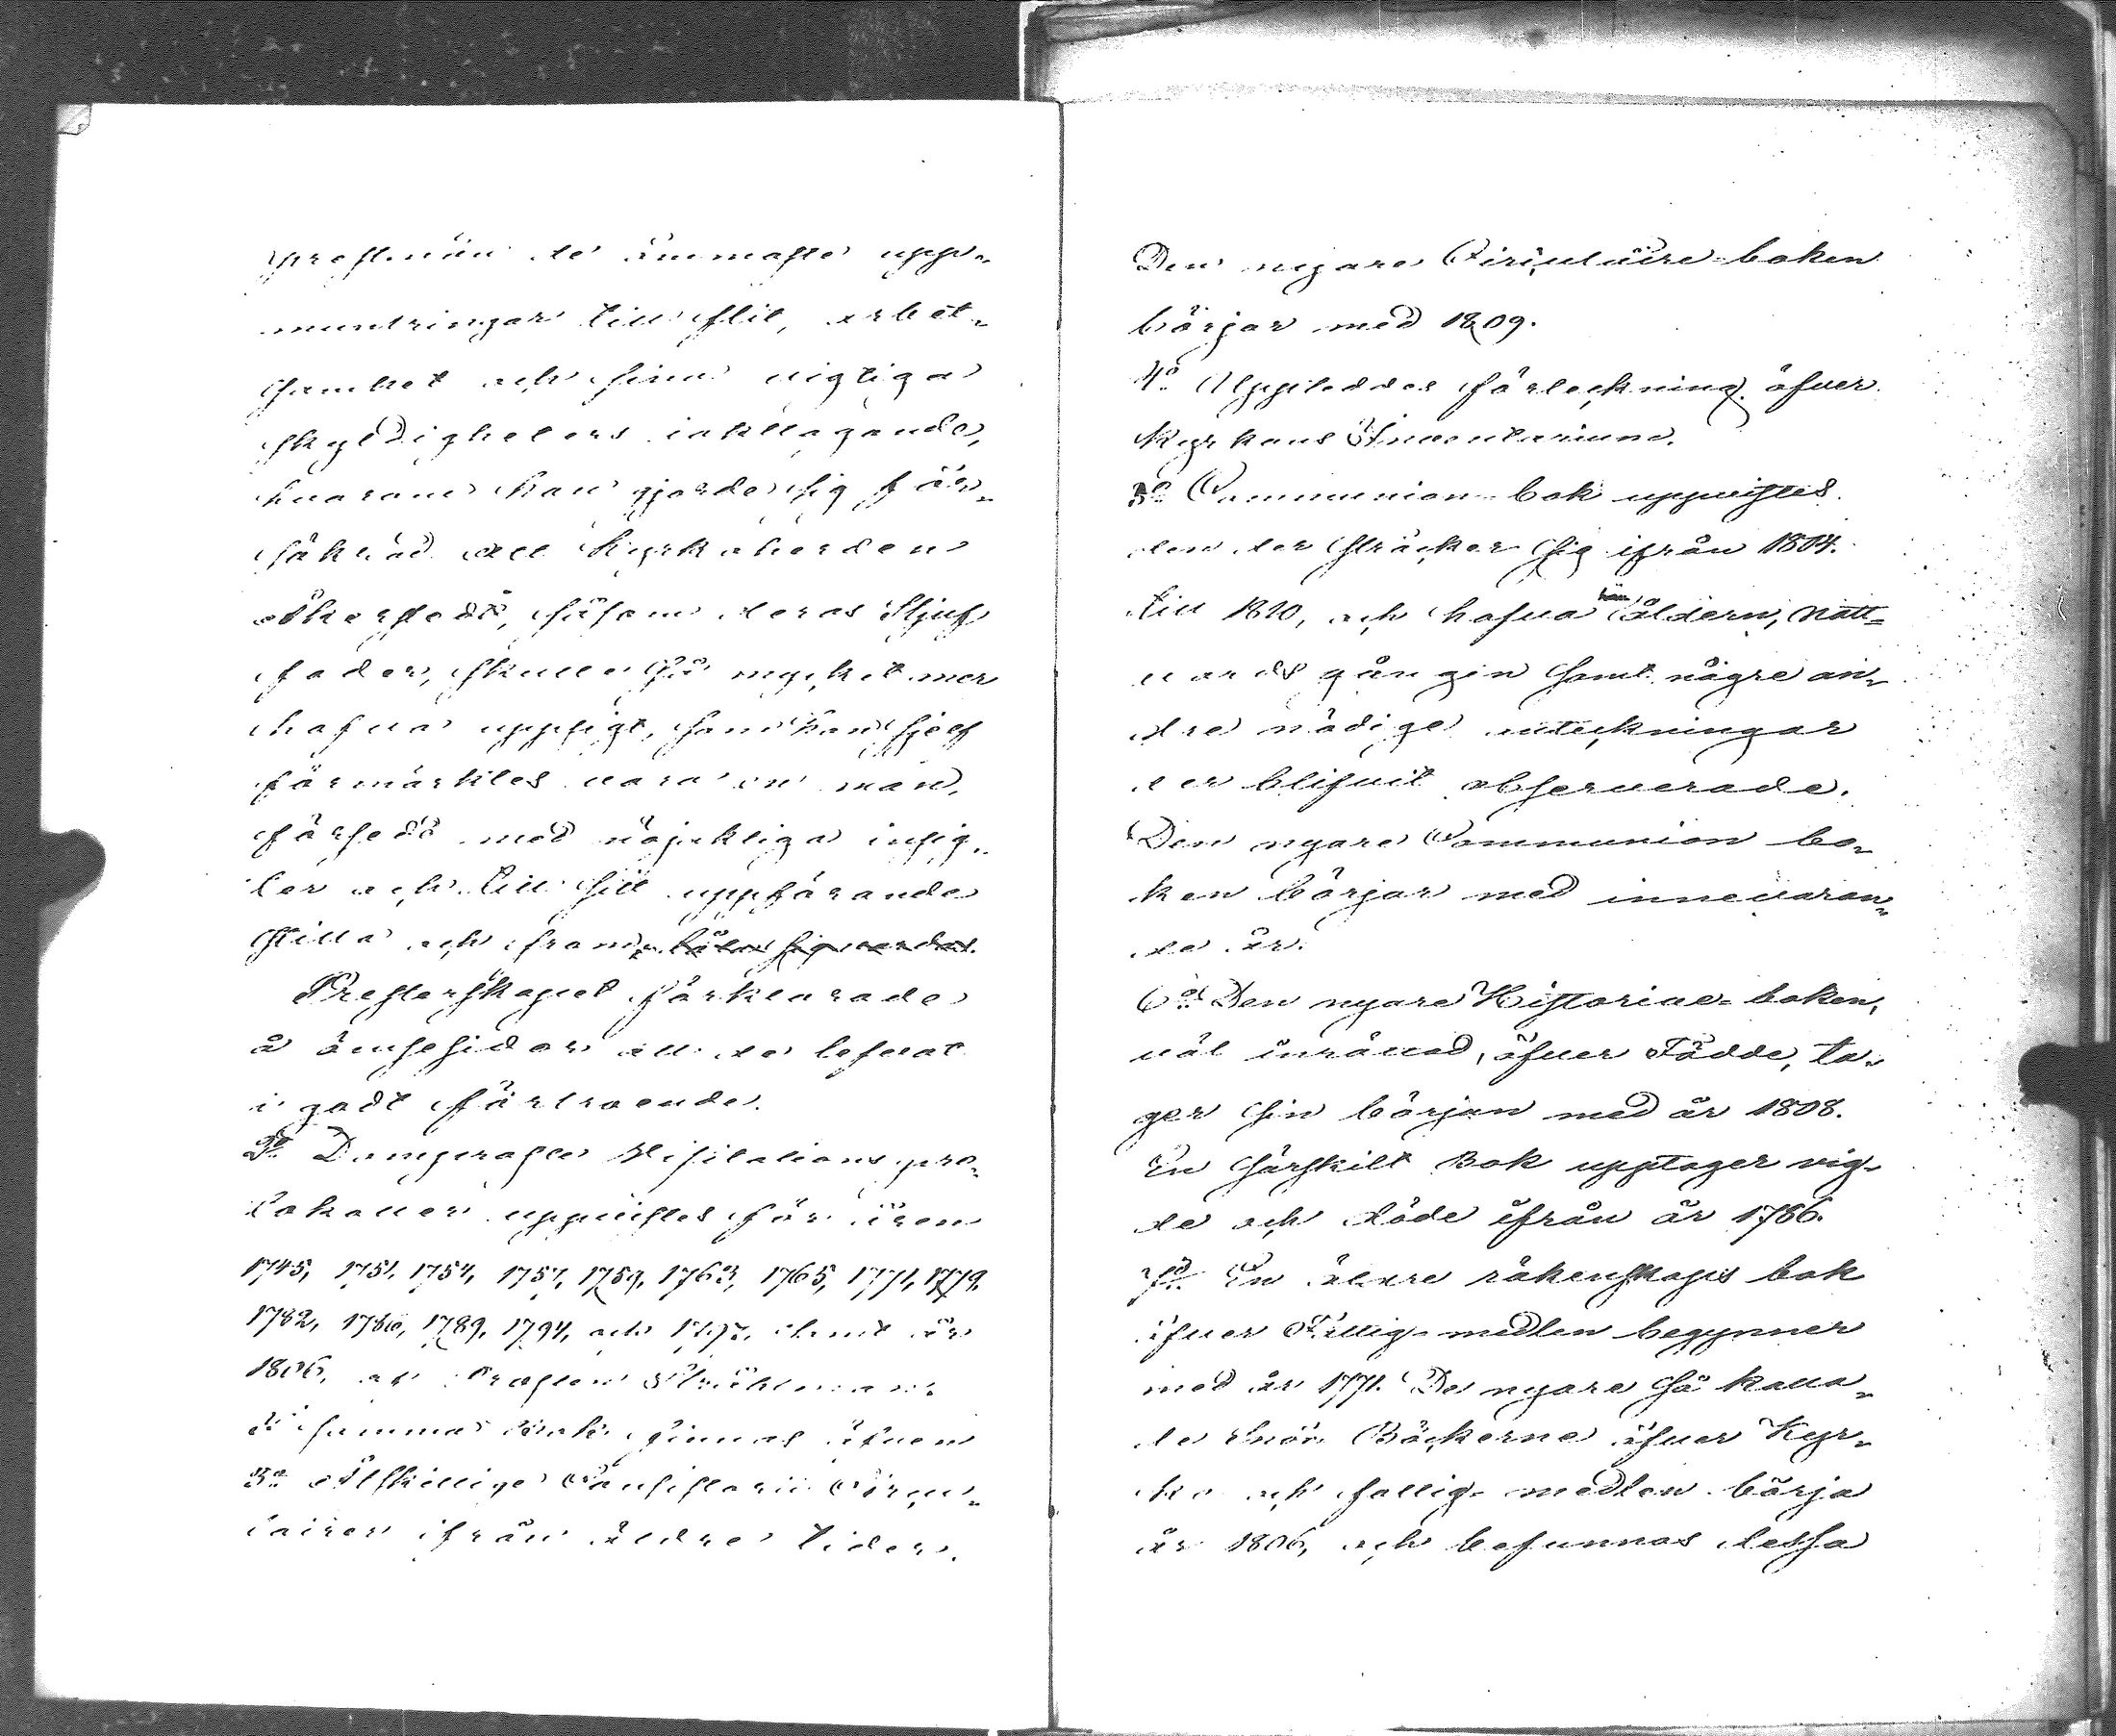 prestmän de ömmaste upp-
muntringar till flit, arbet-
samhet och sine vigtiga
skyldigheters iakttagande,
hvarom han gjorde sig för-
säkrad att Kyrkoherden
Åkerstedt, såsom deras Stjuf
fader, skulle så mycket mer
hafva uppsigt, som han sjelf
förmärktes vara en man,
försedd med nöjaktiga insig-
ter och till sitt uppförande
stilla och from
Presterskapet förklarade
å ömsesidor att de lefvat
i godt förtroende.
2o Domprosten Visitations pro-
tokoller uppvistes för åren
1745, 1751, 1754, 1757, 1759, 1763, 1765, 1771, 1779,
1782, 1786, 1789, 1794, och 1797, samt år
1806, af Prosten
I samma bok finnas äfven
3o Åtskillige Consistorii Circu-
lairer ifrån äldre tider.
Den nyare Circulaire-boken
börjar med 1809.
4o Uppteddes förteckning öfver
Kyrkans Inventarium.
5o Communion-bok uppvistes
den der sträcker sig ifrån 1804.
till 1810, och hafva åldern, natt-
vards gången samt någre an-
dre nödige anteckningar
der blifvit observerade.
Den nyare Communion bo-
ken börjar med innevaran-
de år.
6o Den nyare Historiae-boken,
väl inrättad, öfver Födde, ta-
ger sin början med år 1808.
En särskilt Bok upptager vig-
de och döde ifrån år 1786.
7o En äldre räkenskaps bok
öfver Fattig-medlen begynner
med år 1771. De nyare så kalla-
de Snör Böckerne öfver Kyr-
ko och fattig-medlen börja
år 1806, och befunnos dessa